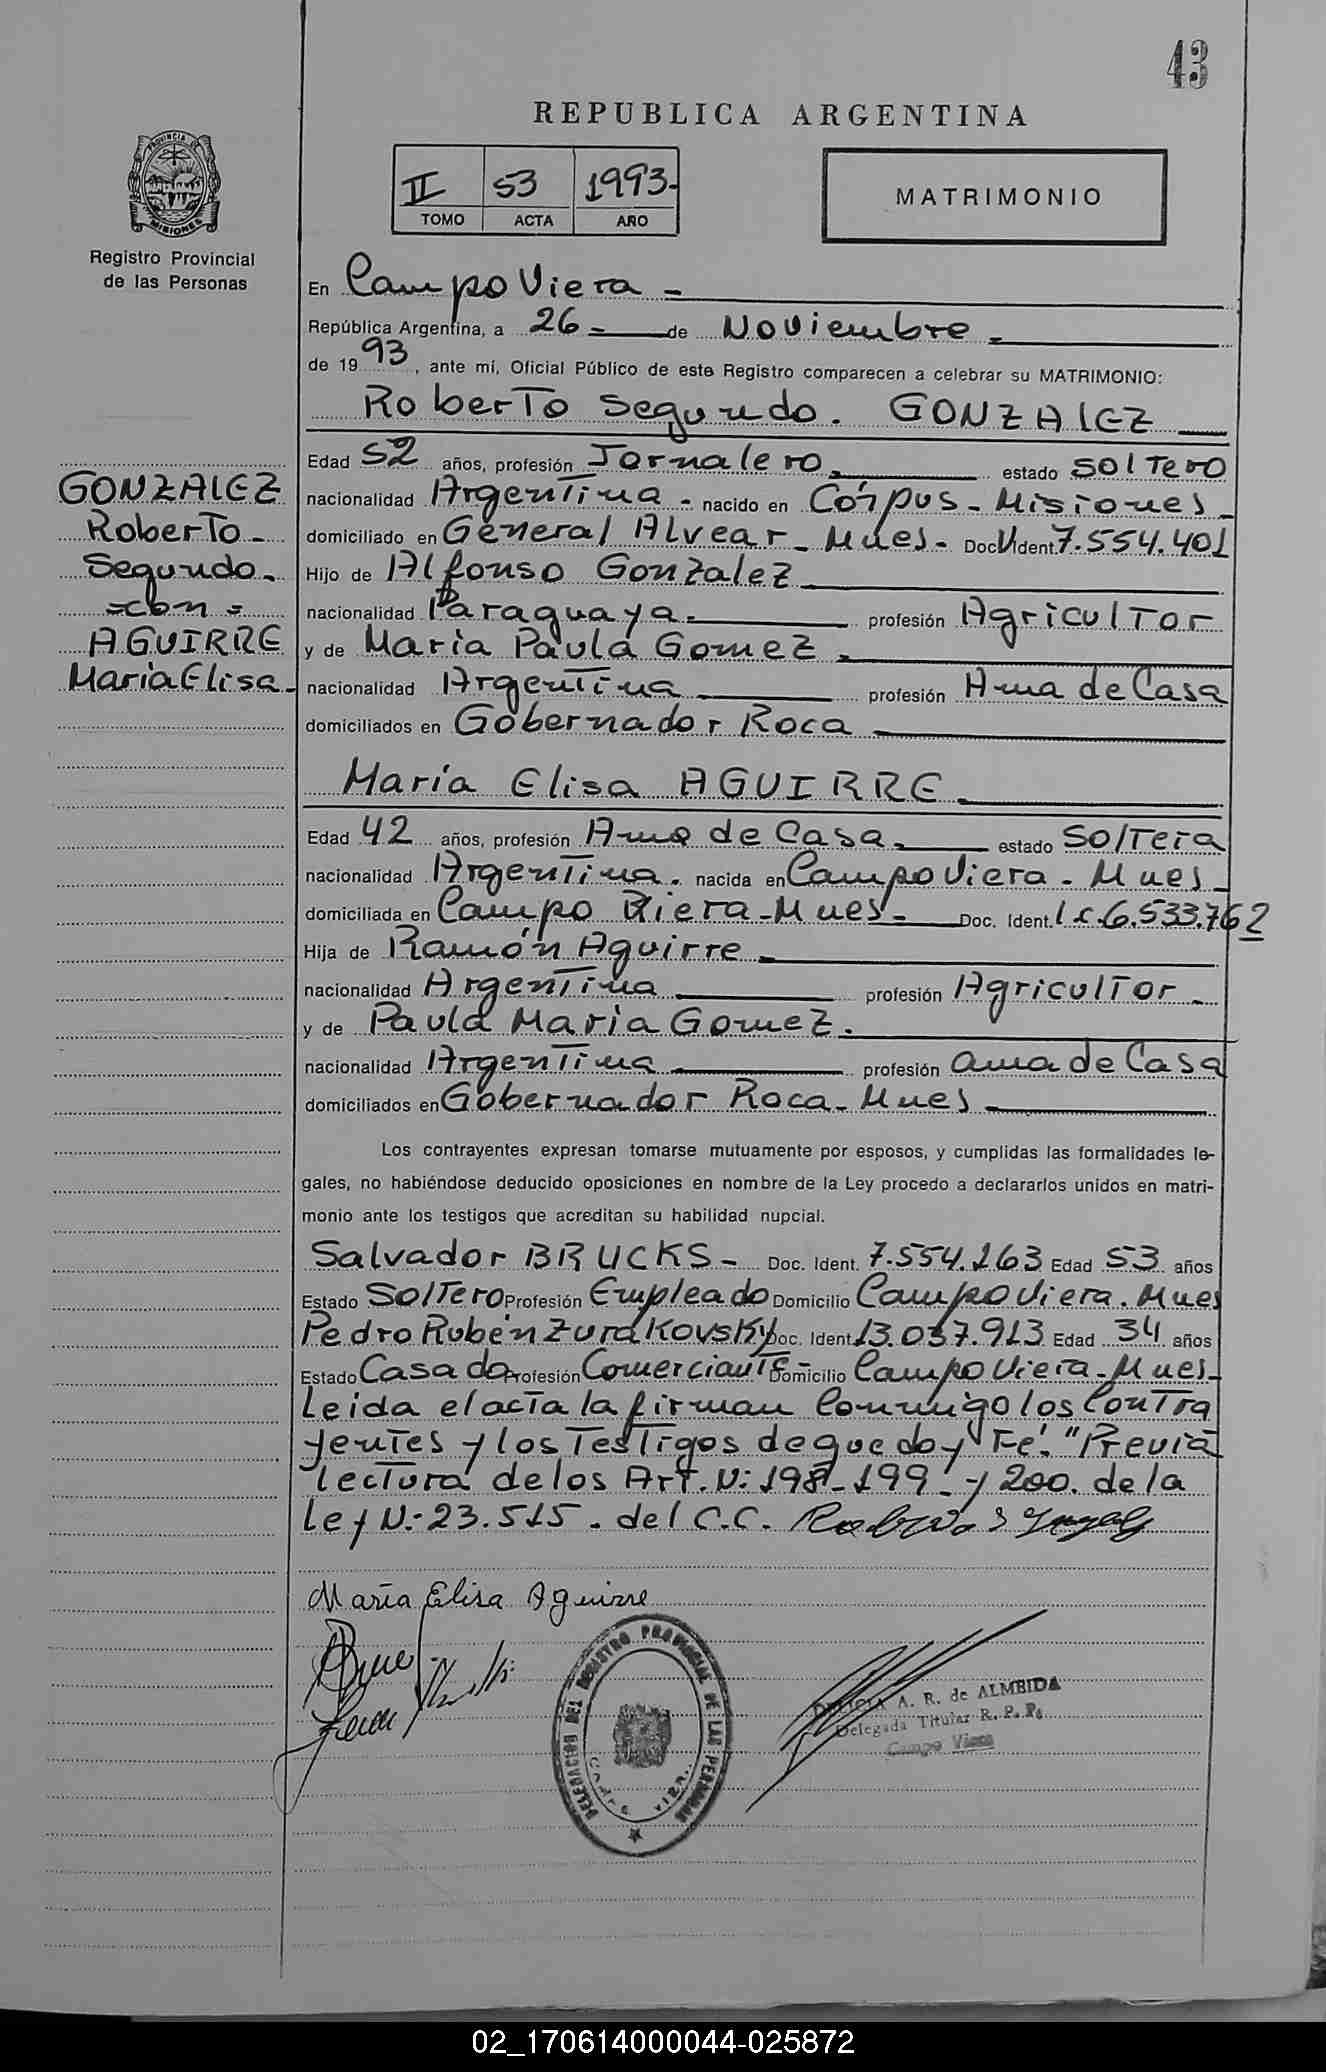 43
REPUBLICA ARGENTINA
II 53 1993-
TOMO ACTA AÑO
MATRIMONIO
PROVINCIA DE MISIONES
Registro Provincial
de las Personas
GONZALEZ
Roberto-
Segundo.
=con=
AGUIRRE
Maria Elisa-
En Campo Viera-
República Argentina, a 26- de Noviembre
de 1993, ante mí, Oficial Público de este Registro comparecen a celebrar su MATRIMONIO:
Roberto Segundo. GONZALEZ
Edad 52 años, profesión Jornalero. estado Soltero
nacionalidad Argentina- nacido en Córpus- Misiones-
domiciliado en General Alvear- Mnes- Doc. Ident. 7.554.401
Hijo de Alfonso Gonzalez
nacionalidad Paraguaya. profesión Agricultor
y de Maria Paula Gomez.
nacionalidad Argentina profesión Ama de Casa
domiciliados en Gobernador Roca
María Elisa AGUIRRE.
Edad 42 años, profesión Ama de Casa. estado Soltera
nacionalidad Argentina. nacida en Campo Viera- Mnes-
domiciliada en Campo Viera-Mnes- Doc. Ident. L.C.6.533.762
Hija de Ramón Aguirre
nacionalidad Argentina profesión Agricultor-
y de Paula Maria Gomez.
nacionalidad Argentina profesión ama de Casa
domiciliados en Gobernador Roca- Mnes
Los contrayentes expresan tomarse mutuamente por esposos, y cumplidas las formalidades le-
gales, no habiéndose deducido oposiciones en nombre de la Ley procedo a declararlos unidos en matri-
monio ante los testigos que acreditan su habilidad nupcial.
Salvador BRUCKS- Doc. Ident. 7.554.163 Edad 53 años
Estado Soltero Profesión Empleado Domicilio Campo Viera. Mnes
Pedro Rubén Zurakovsky Doc. Ident. 13.037.913 Edad 34 años
Estado Casado Profesión Comerciante- Domicilio Campo Viera-Mnes-
Leida el acta la firman Conmigo los Contra
yentes y los Testigos de que doy Fé. "Previa
lectura de los Art. N: 198-199-y 200. de la
ley N:-23.515. del C.C.
María Elisa Aguirre
DELEGACION DEL REGISTRO PROVINCIAL DE LAS PERSONAS
CAMPO VIERA
A. R. de ALMEIDA
Delegada Titular R. P. P.
Campo Viera
02_170614000044-025872